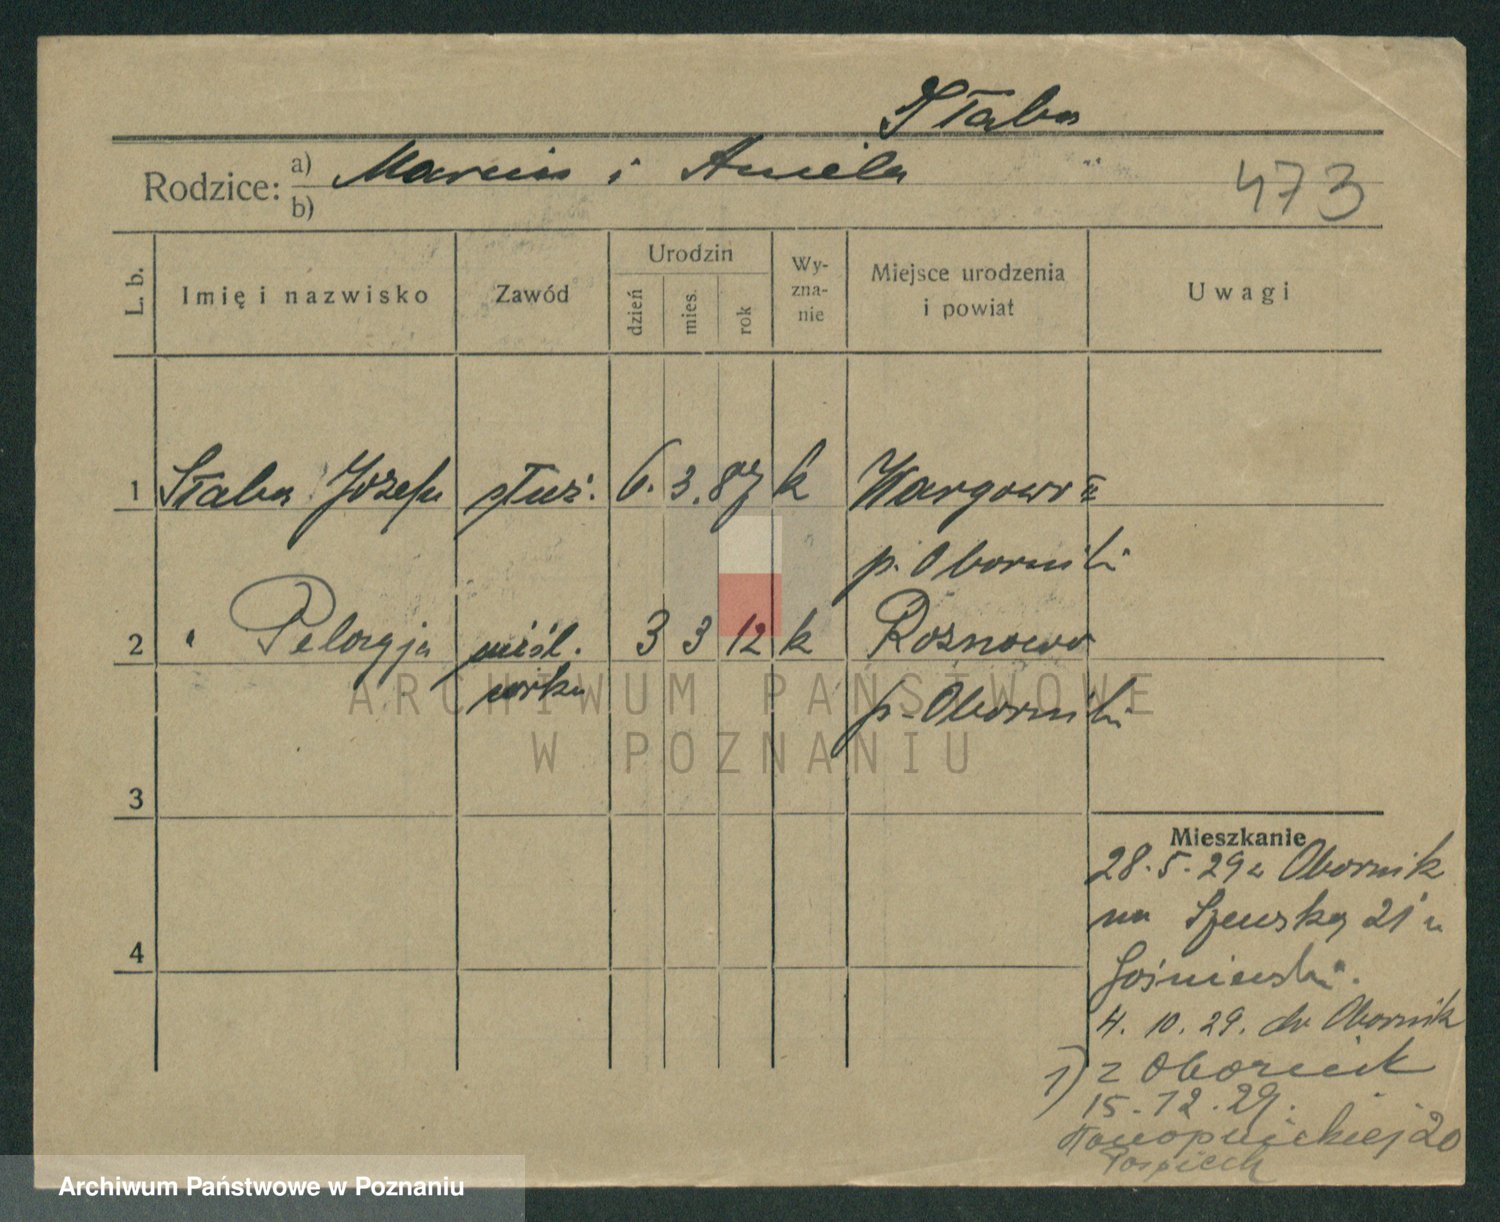 Słaba
Rodzice: a) Marcin i Aniela
b)
473
L. b. Imię i nazwisko Zawód Urodzin dzień mies. rok Wyznanie Miejsce urodzenia i powiat Uwagi
1 Słaba Józefa służ. 6. 3. 87 k Wargowo
p. Oborniki
2 " Pelagja 3 3 12 k Rożnowo
p. Oborniki
3
4
Mieszkanie
28.5.29 z Obornik
na Szewska 21
4. 10. 29. do Obornik
1) z Obornik
15.12.29.
Konopnickiej 20
ARCHIWUM PAŃSTWOWE
W POZNANIU
Archiwum Państwowe w Poznaniu